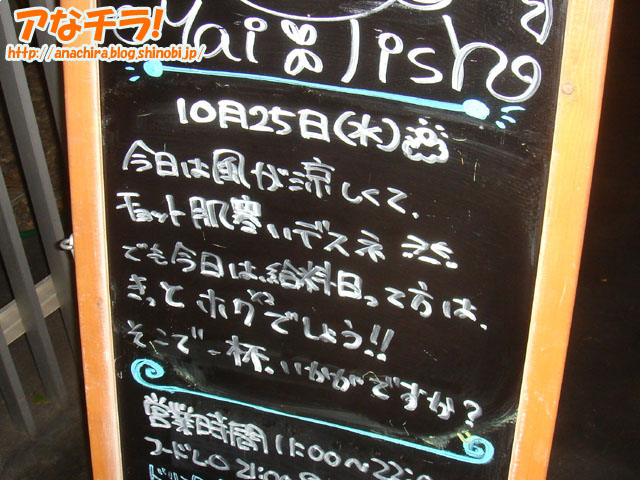 アなチラ!
http://anachira.blog.shinobi.jp/
Mai lish
10月25日(水)
今日は風が涼しくて、
チョット肌寒いデスネ
でも今日は、給料日って方は、
きっとホクホクでしょう!!
そこで一杯、いかがですか?
営業時間 11:00〜22:0
フードLO 21:00
ドリン